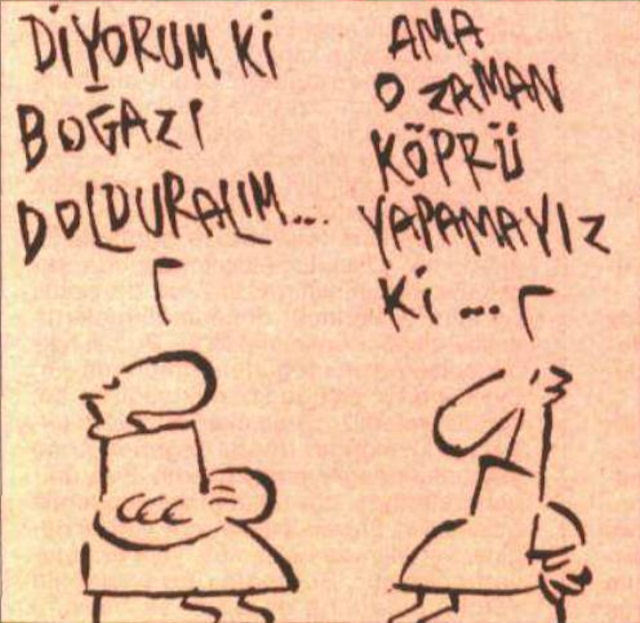 DİYORUM Kİ
BOĞAZI
DOLDURALIM...
AMA
O ZAMAN
KÖPRÜ
YAPAMAYIZ
Kİ...